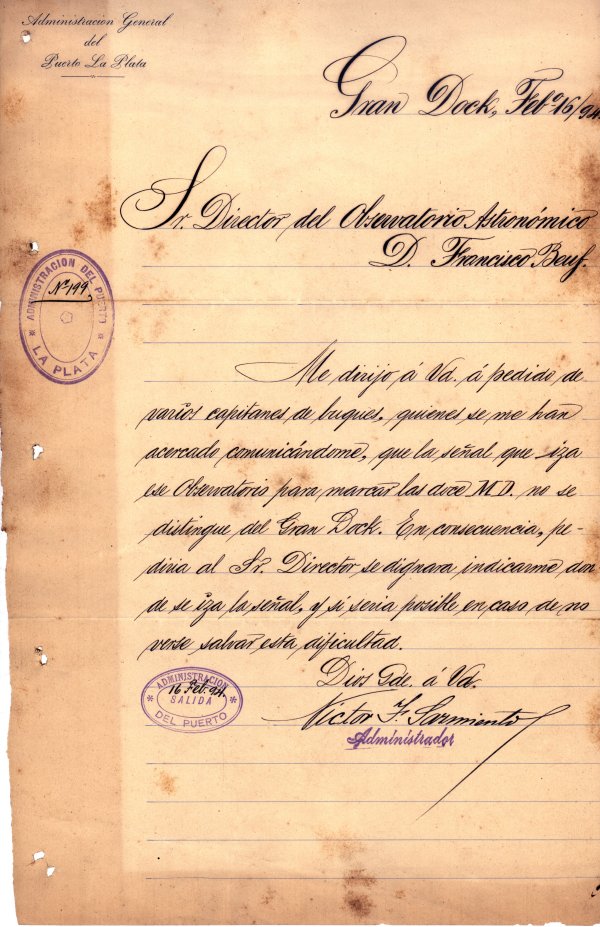 Administracion General
del
Puerto La Plata
Gran Dock, Feb.º 16/94.
Sr. Director del Observatorio Astronómico
D. Francisco Beuf.
ADMINISTRACION DEL PUERTO
Nº 199
LA PLATA
Me dirijo á Vd. á pedido de
varios capitanes de buques, quienes se me han
acercado comunicándome, que la señal que iza
ese Observatorio para marcar las doce M.D. no se
distingue del Gran Dock. En consecuencia, pe-
diria al Sr. Director se dignara indicarme don
de se iza la señal, y si seria posible en caso de no
verse salvar esta dificultad.
Dios Gde. á Vd.
Victor F. Sarmiento
Administrador
ADMINISTRACION
16 Feb. 94.
SALIDA
DEL PUERTO